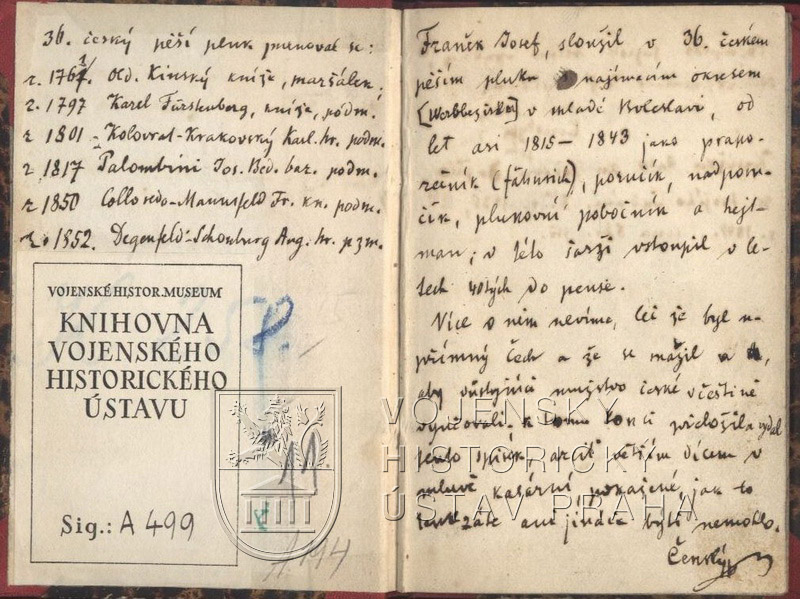 36. český pěší pluk jmenoval se:
r. 1767. Old. Kinský kníže, maršálek.
r. 1797 Karel Fürstenberg, kníže, podm.
r 1801 - Kolovrat-Krakovský Karl. hr. podm.
r 1817 Palombini Jos. Bed. bar. podm.
r 1850 Colloredo-Mannsfeld Fr. kn. podm.
r. 1852. Degenfeld-Schonburg Aug. hr. pzm.
VOJENSKÉ HISTOR. MUSEUM
KNIHOVNA
VOJENSKÉHO
HISTORICKÉHO
ÚSTAVU
Sig.: A 499
A 194
Franěk Josef, sloužil v 36. českém
pěším pluku najímacím okresem
[Werbbezirke] v mladé Boleslavi, od
let asi 1815 – 1843 jako prapo-
rečník (fähnrich), poručík, nadporu-
čík, plukovní pobočník a hejt-
man; v této šarži vstoupil v le-
tech 40tých do pense.
Více o něm nevíme, leč že byl u-
přímný čech a že se snažil
aby důstojníci mužstvo české v češtině
vyučovali. k tomu konci předložil a vydal
tento spisek, arciť větším dílem v
mluvě kasární pokažené, jak to
tenkráte ani jináče býti nemohlo.
Čenský
VOJENSKÝ
HISTORICKÝ
ÚSTAV PRAHA